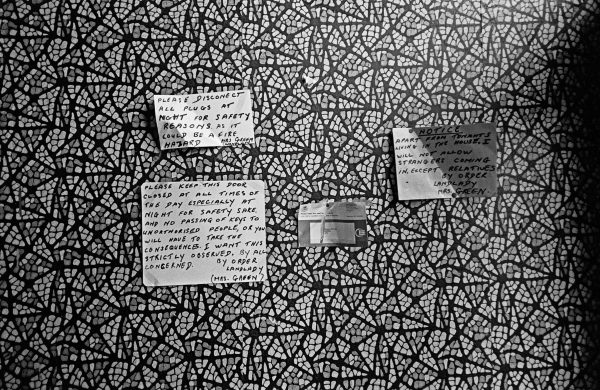 PLEASE DISCONECT
ALL PLUGS AT
NIGHT FOR SAFETY
REASONS. AS IT
COULD BE A FIRE
HAZARD MRS. GREEN
PLEASE KEEP THIS DOOR
CLOSED AT ALL TIMES OF
THE DAY ESPECIALLY AT
NIGHT FOR SAFETY SAKE
AND NO PASSING OF KEYS TO
UNAUTHORISED PEOPLE, OR YOU
WILL HAVE TO TAKE THE
CONSEQUENCES. I WANT THIS
STRICTLY OBSERVED. BY ALL
CONCERNED. BY ORDER
LANDLADY
(MRS. GREEN)
NOTICE
APART FROM TENANTS
LIVING IN THE HOUSE, I
WILL NOT ALLOW
STRANGERS COMING
IN, EXCEPT RELATIVES
BY ORDER
LANDLADY
MRS. GREEN.